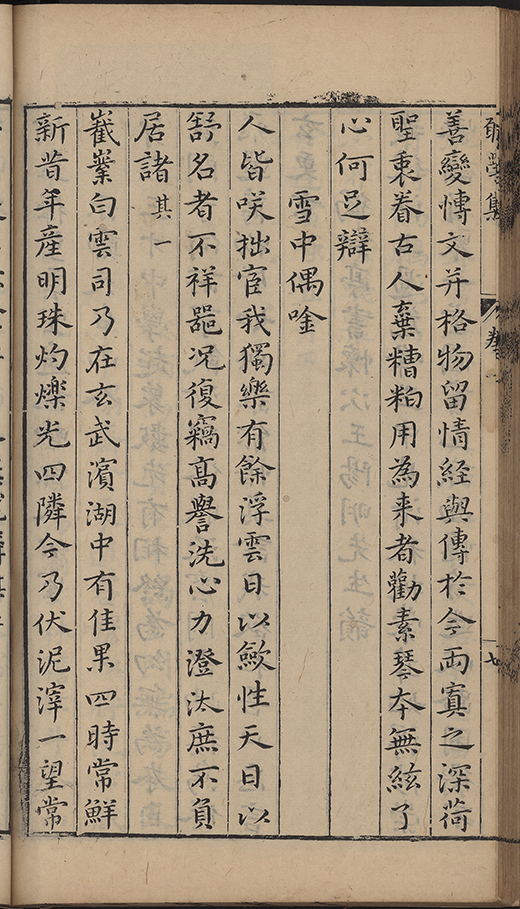 善變博文并格物留情經與傳於今兩寘之深荷
聖衷眷古人棄糟粕用為来者勸素琴本無絃了
心何足辯
雪中偶唫
人皆咲拙宦我獨樂有餘浮雲日以歛性天日以
舒名者不祥噐况復竊髙譽洗心力澄汰庶不負
居諸其一
嶻嶪白雲司乃在玄武濱湖中有佳果四時常鮮
新昔年産明珠灼爍光四隣今乃伏泥滓一望常